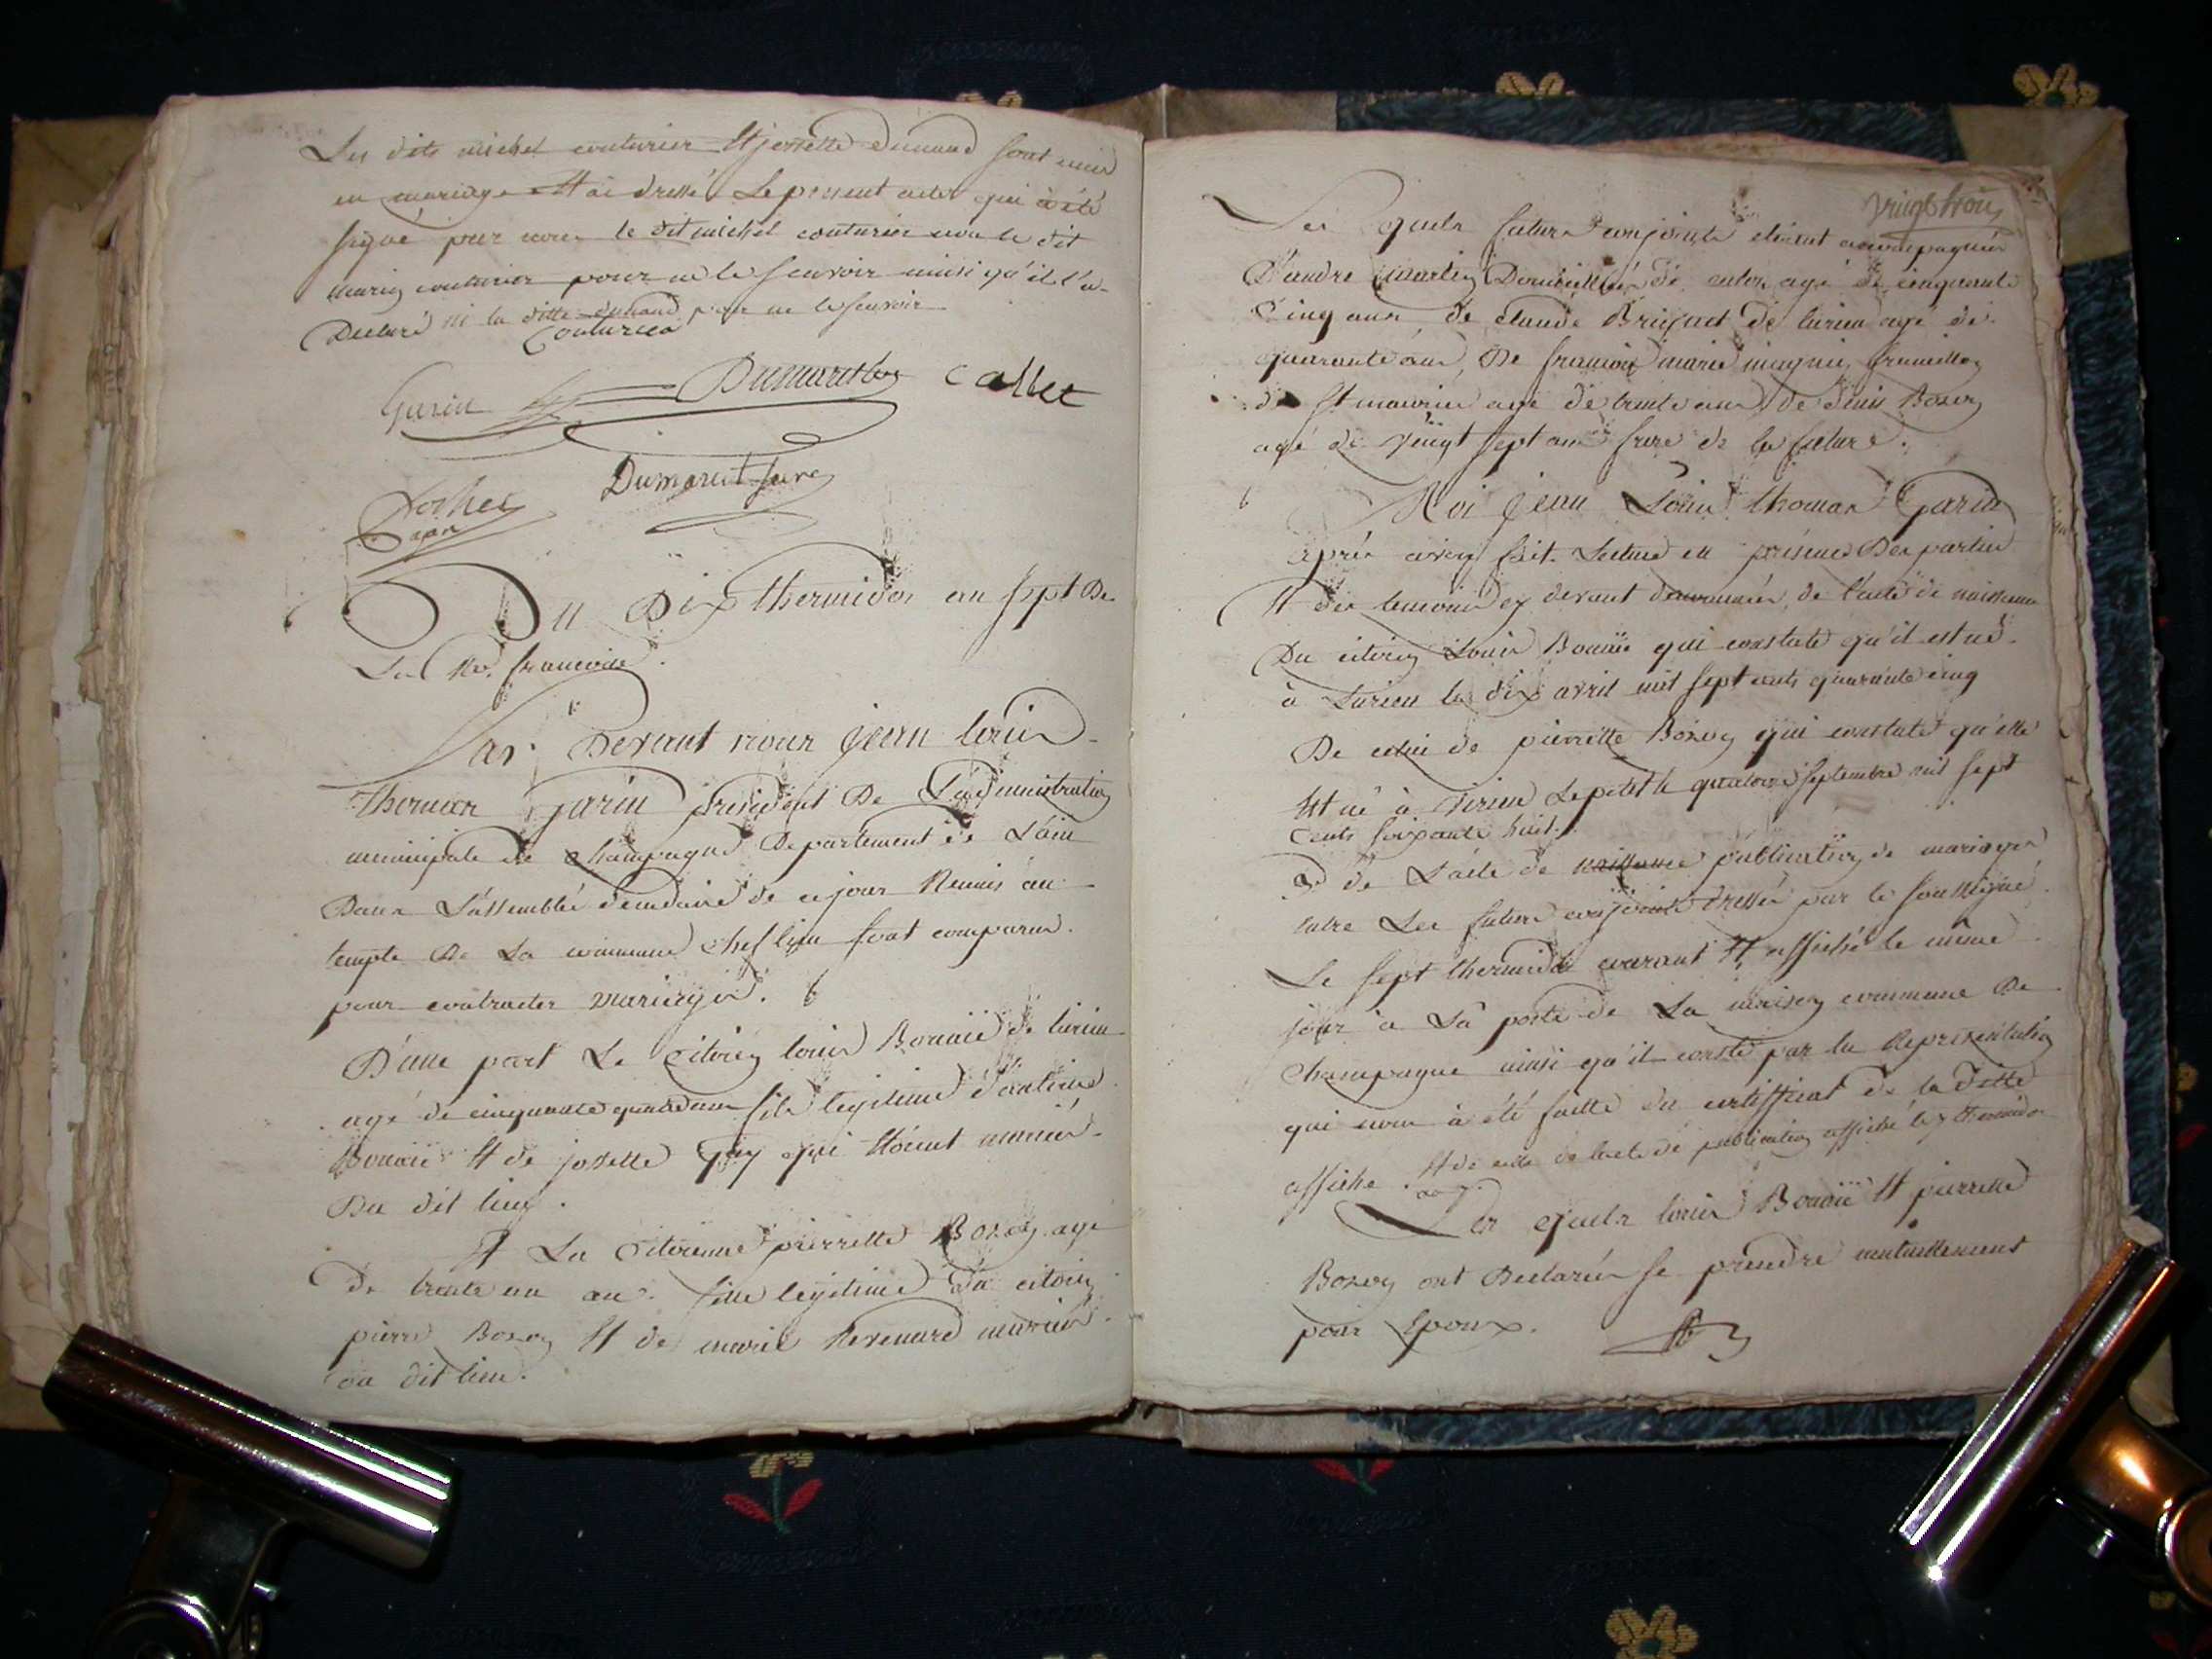 Les dits michel couturier Et josette dunand sont unis
en mariage Et ai dressé Le present acte qui à été
signé par nous le dit michel couturier non le dit
couturier pour ne le scavoir ainsi qu'il l'a
Declaré ni la ditte dunand pour ne le scavoir
Couturier
Garin Dumarest Callet
Dumarest
Du Dix thermidor an sept De
La Rep. francoise.
Par Devant nous jean louis
Thomas Garin president De L'administration
municipale de champagne Departement de L'ain
Dans L'assemblée decadaire de ce jour Reunis au
temple De La commune chef lieu sont comparus
pour contracter mariage.
D'une part Le Citoien louis Bonnié de lurieu
agé de cinquante quatre ans fils legitime d'antoine
Bonnié Et de josette Guy qui Etoient mariés
Du dit lieu.
Et La Citoienne pierrette Bozon age
De trente un an fille legitime du citoien
pierre Bozon Et de marie mariés
du dit lieu.
vingt trois
Les quels futurs conjoints etoient accompagnés
D'andré martin Domicillié de agé de cinquante
Cinq ans, de claude de lurieu agé de
quarante ans, De francois marie
de St maurice agé de trente ans, de denis Bozon
agé de vingt sept ans frere de la future.
Moi jean Louis thomas Garin
après avoir fait Lecture en présence Des parties
Et des temoins cy devant denommés, de l'acte de naissance
Du citoien Louis Bonnié qui constate qu'il est né
à Lurieu le dix avril mil sept cents quarante cinq
De celui de pierrette Bozon qui constate qu'elle
Est né à virieu Le petit le quatorze septembre mil sept
Cents soixante huit.
de L'acte de naissance publication de mariage
entre Les futurs conjoints dressé par le soussigné
Le sept thermidor courant Et affiché le même
jour à La porte de La maison commune De
Champagne ainsi qu'il conste par la Representation
qui nous à été faitte du certifficat de la ditte
affiche. Et de celle de l'acte de publication affiché le 7 thermidor
an 7.
Les quels louis Bonnié Et pierrette
Bozon ont Declarés se prendre mutuellement
pour Epoux.